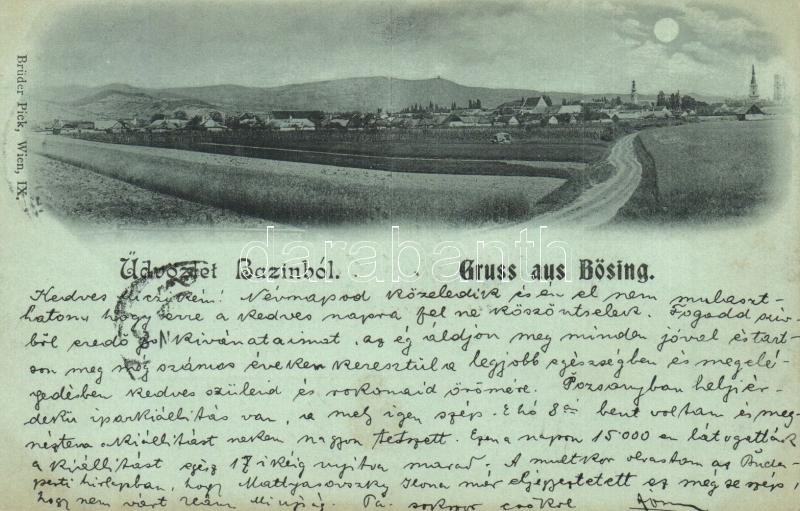 Brüder Pick, Wien, IX.
darabanth.com
Üdvözlet Bazinból. Gruss aus Bösing.
Kedves Liczykém! Névnapod közeledik és én el nem mulaszt-
hatom, hogy erre a kedves napra fel ne köszöntselek. Fogadd szív-
ből eredő jó kivánataimat, az ég áldjon meg minden jóval és tart-
son meg még számos éveken keresztül a legjobb egészségben és megelé-
gedésben kedves szüleid és rokonaid örömére. Pozsonyban helyiér-
dekü iparkiállitás van, a mely igen szép. E hó 8án bent voltam és meg-
néztem a kiállitást nekem nagyon tetszett. Ezen a napon 15000 en látogatták
a kiállitást egész 17 ikéig nyitva marad. A multkor olvastam az Buda-
pesti hirlapban, hogy Matyasovszky Ilona már eljegyeztetett az még se szép,
hogy nem várt reám Mi ujság. Pá. sokszor csókol